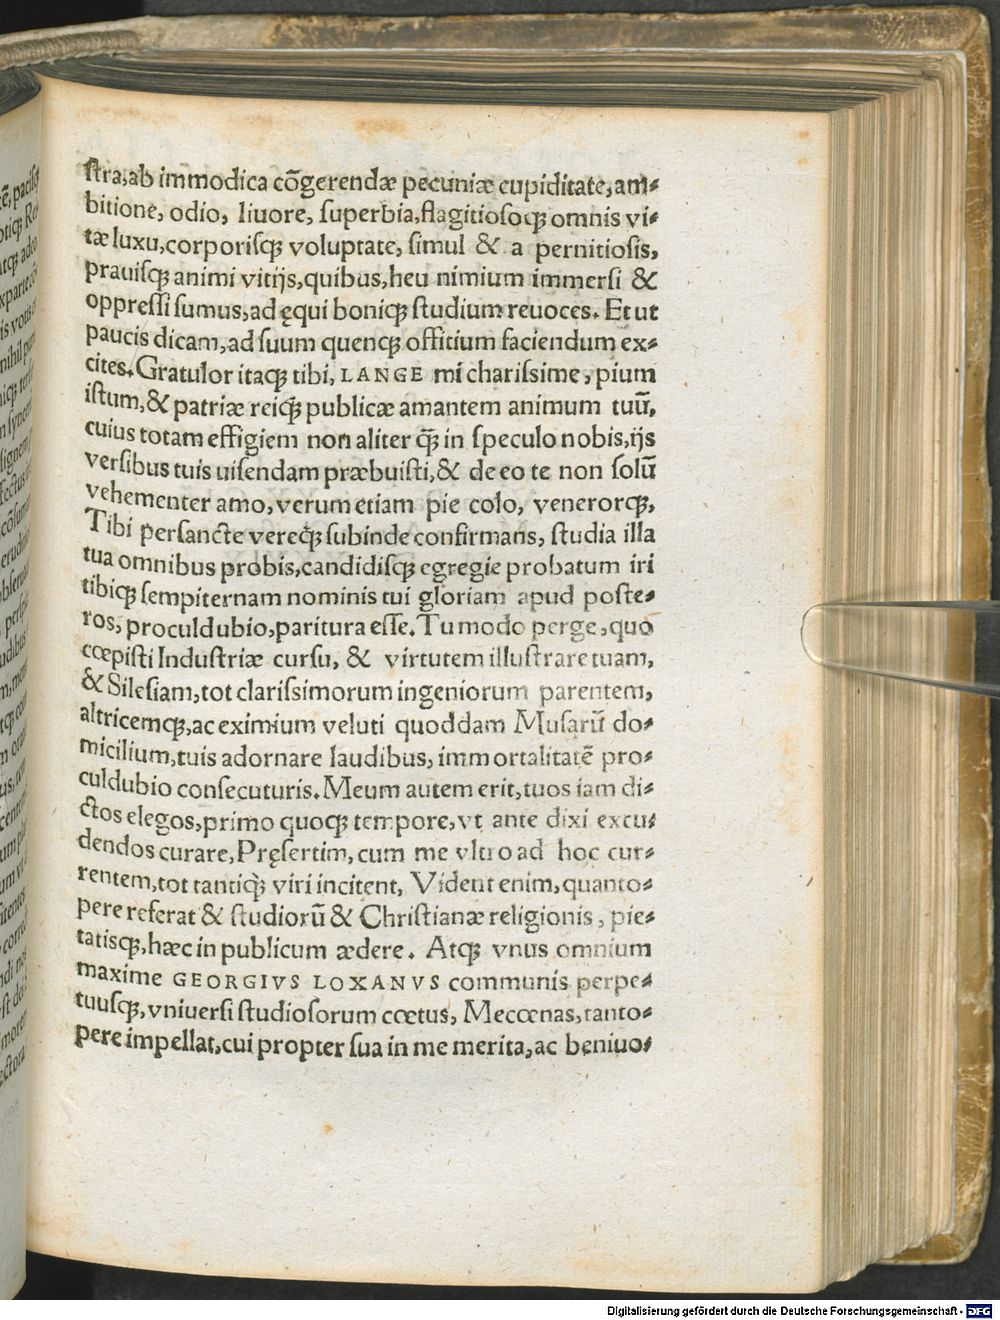 ſtra, ab immodica cõgerendæ pecuniæ cupiditate, am⸗
bitione, odio, liuore, ſuperbia, flagitioſoqꝫ omnis vi⸗
tæ luxu, corporiſqꝫ voluptate, ſimul & a pernitioſis,
prauiſqꝫ animi vitijs, quibus, heu nimium immerſi &
oppreſſi ſumus, ad ęqui boniqꝫ ſtudium reuoces. Et ut
paucis dicam, ad ſuum quencqꝫ offitium faciendum ex⸗
cites. Gratulor itaqꝫ tibi, LANGE mi chariſsime, pium
iſtum, & patriæ reiqꝫ publicæ amantem animum tuũ,
cuius totam effigiem non aliter q̃ꝫ in ſpeculo nobis, ijs
verſibus tuis uiſendam præbuiſti, & de eo te non ſolũ
vehementer amo, verum etiam pie colo, venerorqꝫ,
Tibi perſancte vereq́ꝫ ſubinde confirmans, ſtudia illa
tua omnibus probis, candidiſqꝫ egregie probatum iri
tibiqꝫ ſempiternam nominis tui gloriam apud poſte⸗
ros, proculdubio, paritura eſſe. Tu modo perge, quo
cœpiſti Induſtriæ curſu, & virtutem illuſtrare tuam,
& Sileſiam, tot clariſsimorum ingeniorum parentem,
altricemqꝫ, ac eximium veluti quoddam Muſarũ do⸗
micilium, tuis adornare laudibus, immortalitatẽ pro⸗
culdubio conſecuturis. Meum autem erit, tuos iam di⸗
ctos elegos, primo quoqꝫ tempore, vt ante dixi excu⸗
dendos curare, Pręſertim, cum me vltro ad hoc cur⸗
rentem, tot tantiq́ꝫ viri incitent, Vident enim, quanto⸗
pere referat & ſtudiorũ & Chriſtianæ religionis, pie⸗
tatisqꝫ, hæc in publicum ædere. Atqꝫ vnus omnium
maxime GEORGIVS LOXANVS communis perpe⸗
tuuſqꝫ, vniuerſi ſtudioſorum cœtus, Mecœnas, tanto⸗
pere impellat, cui propter ſua in me merita, ac beniuo⸗
Digitalisierung gefördert durch die Deutsche Forschungsgemeinschaft - DFG